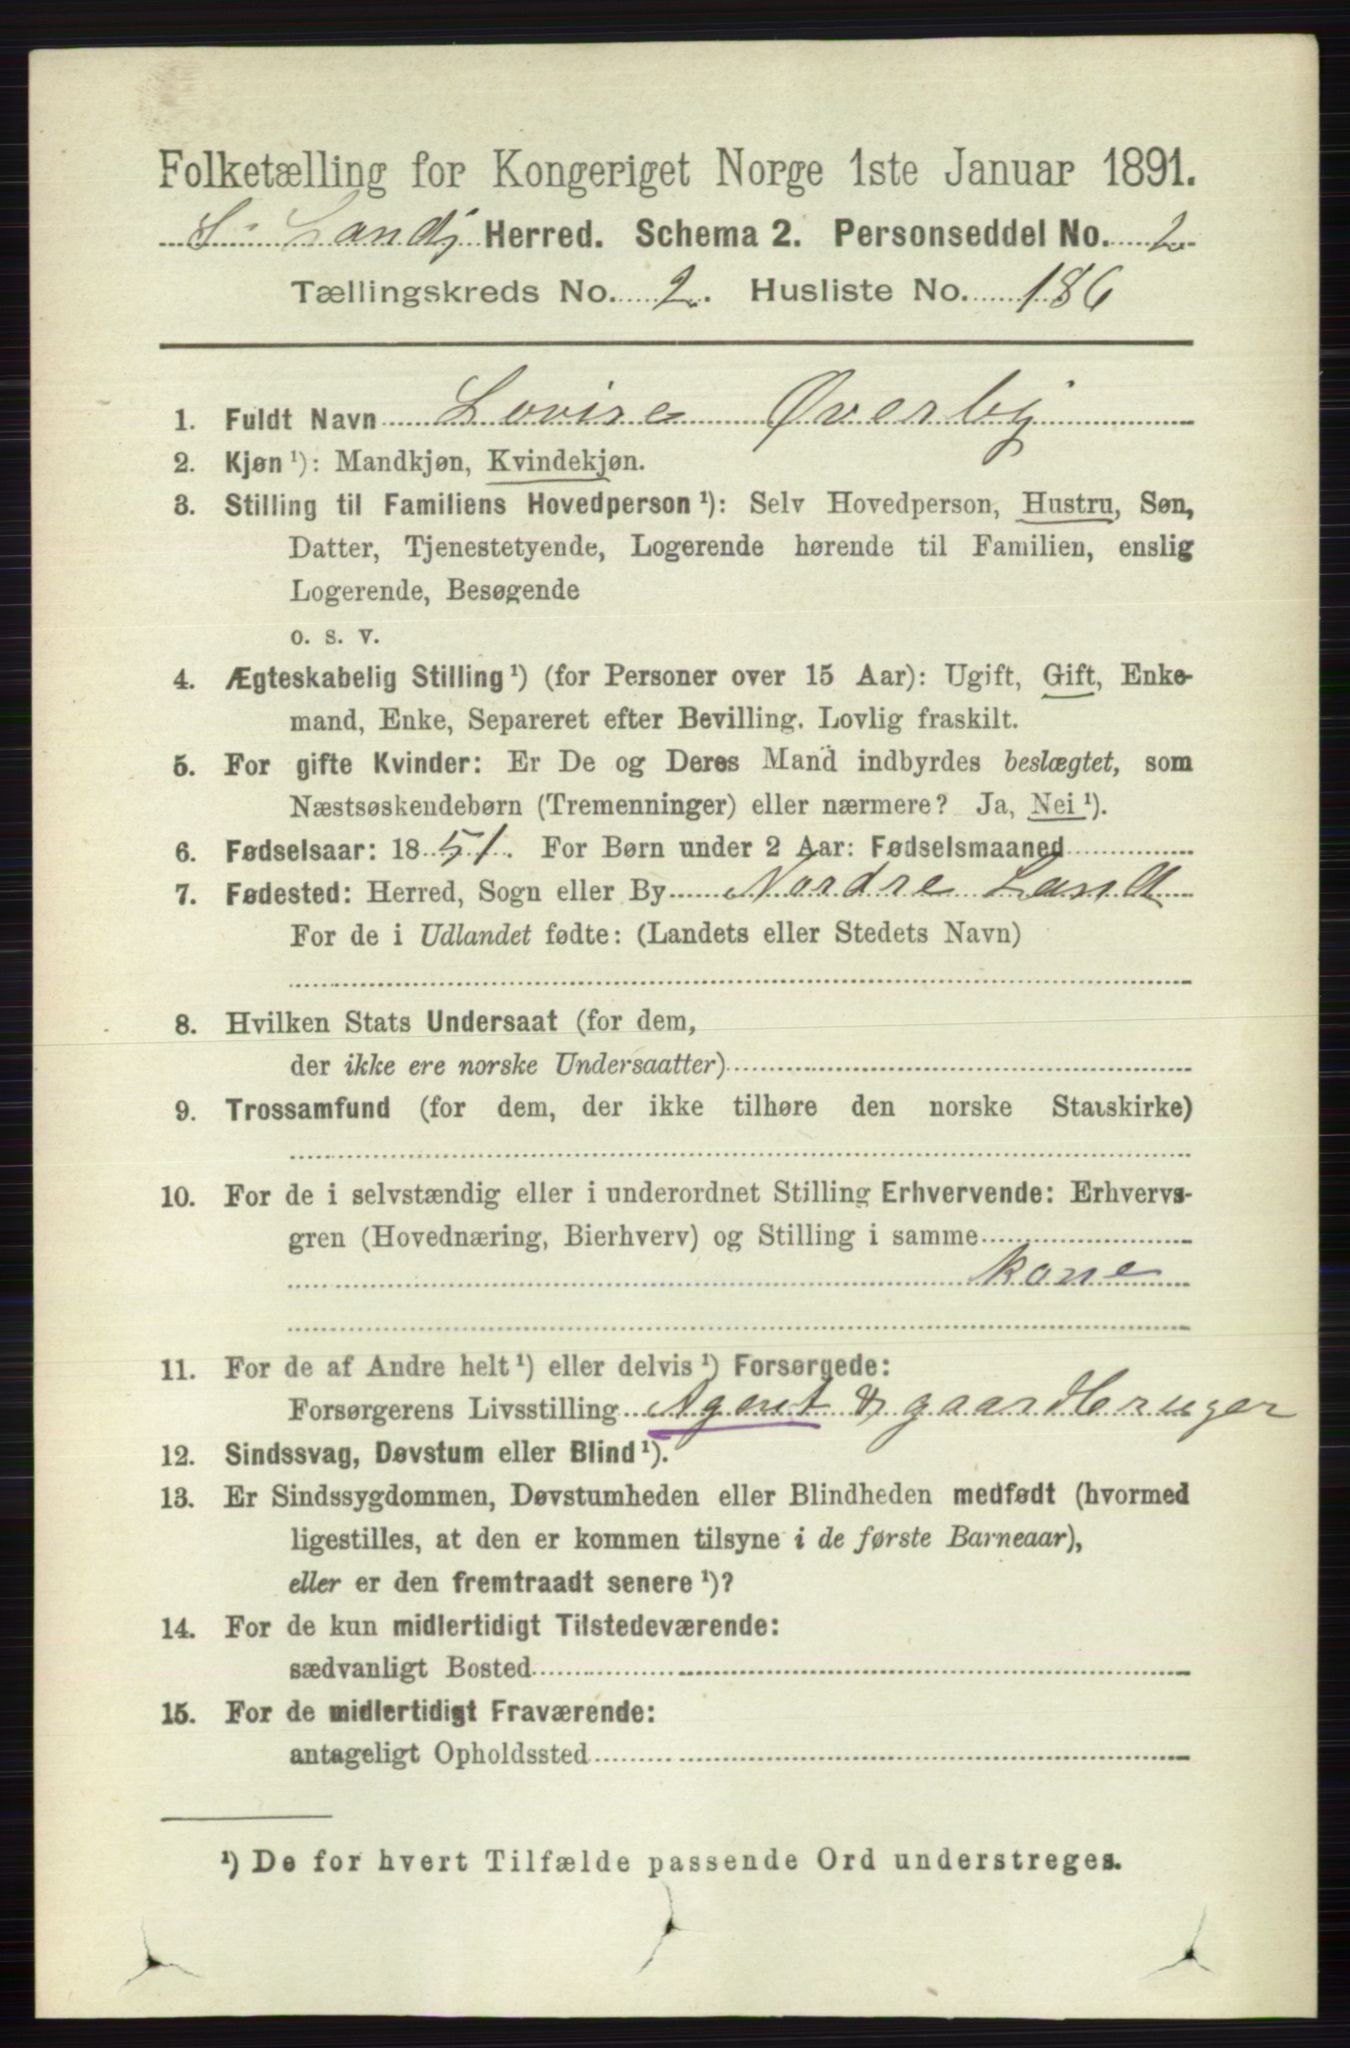 Folketælling for Kongeriget Norge 1ste Januar 1891.
S. Lands Herred. Schema 2. Personseddel No. 2
Tællingskreds No. 2. Husliste No. 186
1. Fuldt Navn Lovise Øverby
2. Kjøn ¹): Mandkjøn, Kvindekjøn.
3. Stilling til Familiens Hovedperson ¹): Selv Hovedperson, Hustru, Søn,
Datter, Tjenestetyende, Logerende hørende til Familien, enslig
Logerende, Besøgende
o. s. v.
4. Ægteskabelig Stilling ¹) (for Personer over 15 Aar): Ugift, Gift, Enke-
mand, Enke, Separeret efter Bevilling. Lovlig fraskilt.
5. For gifte Kvinder: Er De og Deres Mand indbyrdes beslægtet, som
Næstsøskendebørn (Tremenninger) eller nærmere? Ja, Nei ¹).
6. Fødselsaar: 1851. For Børn under 2 Aar: Fødselsmaaned
7. Fødested: Herred, Sogn eller By Nordre Land
For de i Udlandet fødte: (Landets eller Stedets Navn)
8. Hvilken Stats Undersaat (for dem,
der ikke ere norske Undersaatter)
9. Trossamfund (for dem, der ikke tilhøre den norske Statskirke)
10. For de i selvstændig eller i underordnet Stilling Erhvervende: Erhvervs-
gren (Hovednæring, Bierhverv) og Stilling i samme
kone
11. For de af Andre helt ¹) eller delvis ¹) Forsørgede:
Forsørgerens Livsstilling Agent & gaardbruger
12. Sindssvag, Døvstum eller Blind ¹).
13. Er Sindssygdommen, Døvstumheden eller Blindheden medfødt (hvormed
ligestilles, at den er kommen tilsyne i de første Barneaar),
eller er den fremtraadt senere ¹)?
14. For de kun midlertidigt Tilstedeværende:
sædvanligt Bosted
15. For de midlertidigt Fraværende:
antageligt Opholdssted
¹) De for hvert Tilfælde passende Ord understreges.